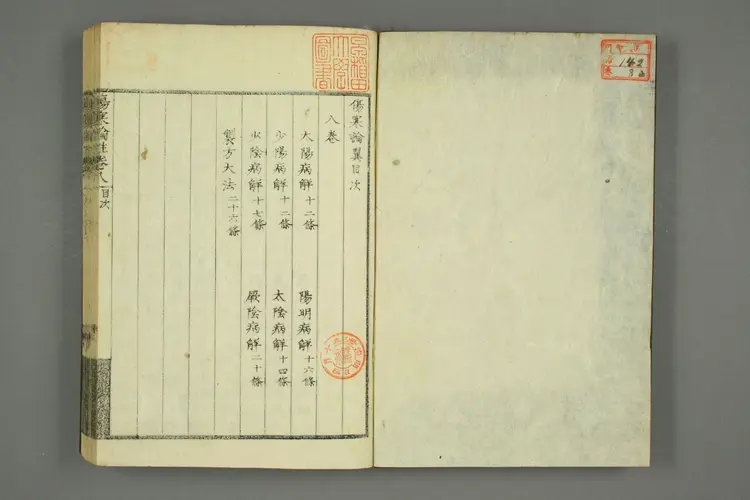 傷寒論翼目次
八卷
太陽病解十二條
陽明病解十六條
少陽病解十二條
太陰病解十四條
少陰病解十七條
厥陰病解二十條
製方大法二十六條
傷寒論註卷八
目次